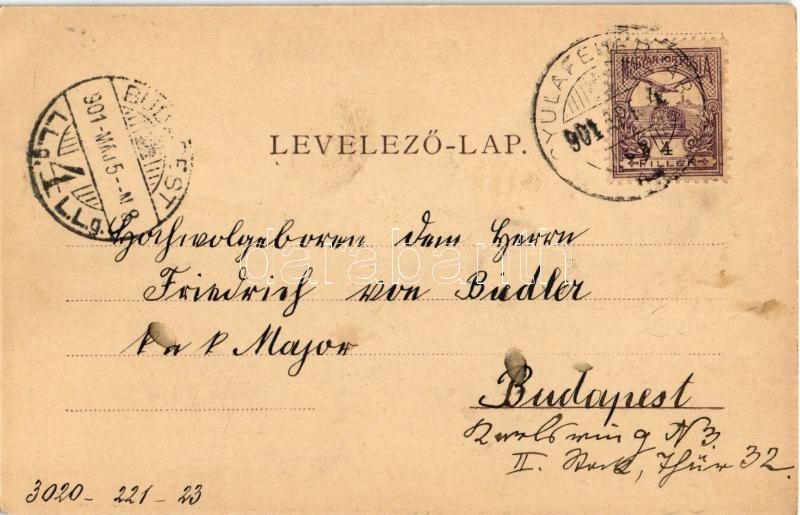 GYULAFEHÉRVÁR
901
MAGYAR KIR. POSTA
4
FILLÉR
BUDAPEST
901 MÁJ 5 - N 8
4
L.L.g.
LEVELEZŐ-LAP.
Hochwolgeboren dem Herrn
Friedrich von Budler
k u k Major
Budapest
Karlsring N 3.
II. Stock, Thür 32.
3020 - 221 - 23
darabanth